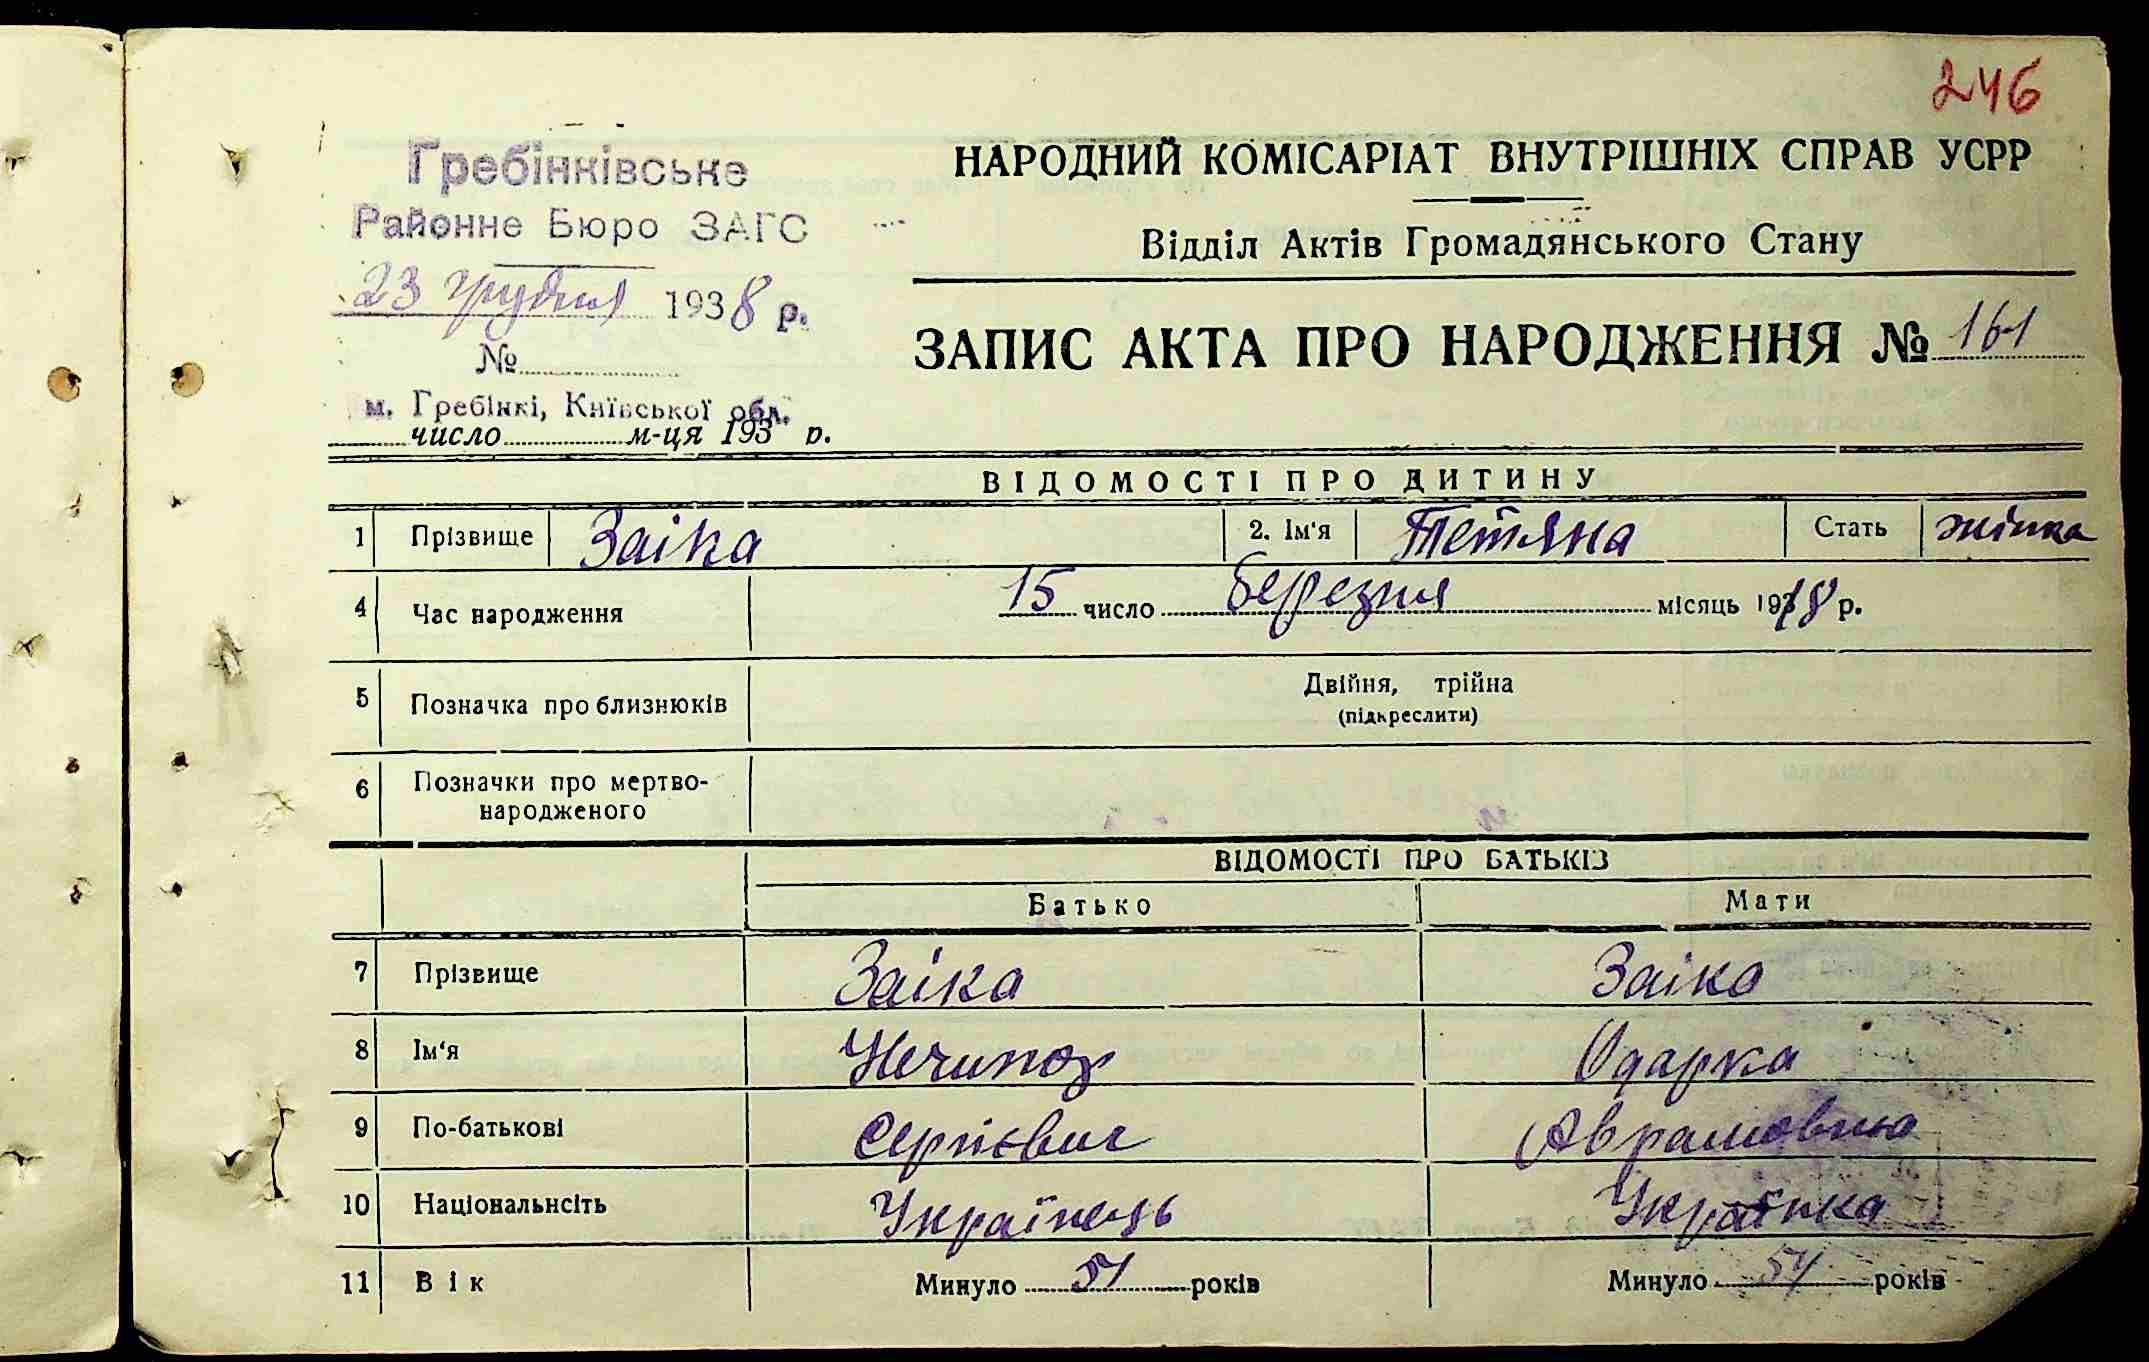 246
Гребінківське
Районне Бюро ЗАГС
23 грудня 1938 р.
№
м. Гребінкі, Київської обл.
число м-ця 193 р.
НАРОДНИЙ КОМІСАРІАТ ВНУТРІШНІХ СПРАВ УСРР
Відділ Актів Громадянського Стану
ЗАПИС АКТА ПРО НАРОДЖЕННЯ № 161
ВІДОМОСТІ ПРО ДИТИНУ
1 Прізвище Заіка 2. Ім'я Тетяна Стать жінка
4 Час народження 15 число березня місяць 1918 р.
5 Позначка про близнюків Двійня, трійна
(підкреслити)
6 Позначки про мертво-
народженого
ВІДОМОСТІ ПРО БАТЬКІВ
Батько Мати
7 Прізвище Заіка Заіка
8 Ім'я Нечипор Одарка
9 По-батькові Сергієвич Аврамовна
10 Національнсіть Українець Українка
11 Вік Минуло 51 років Минуло 54 років